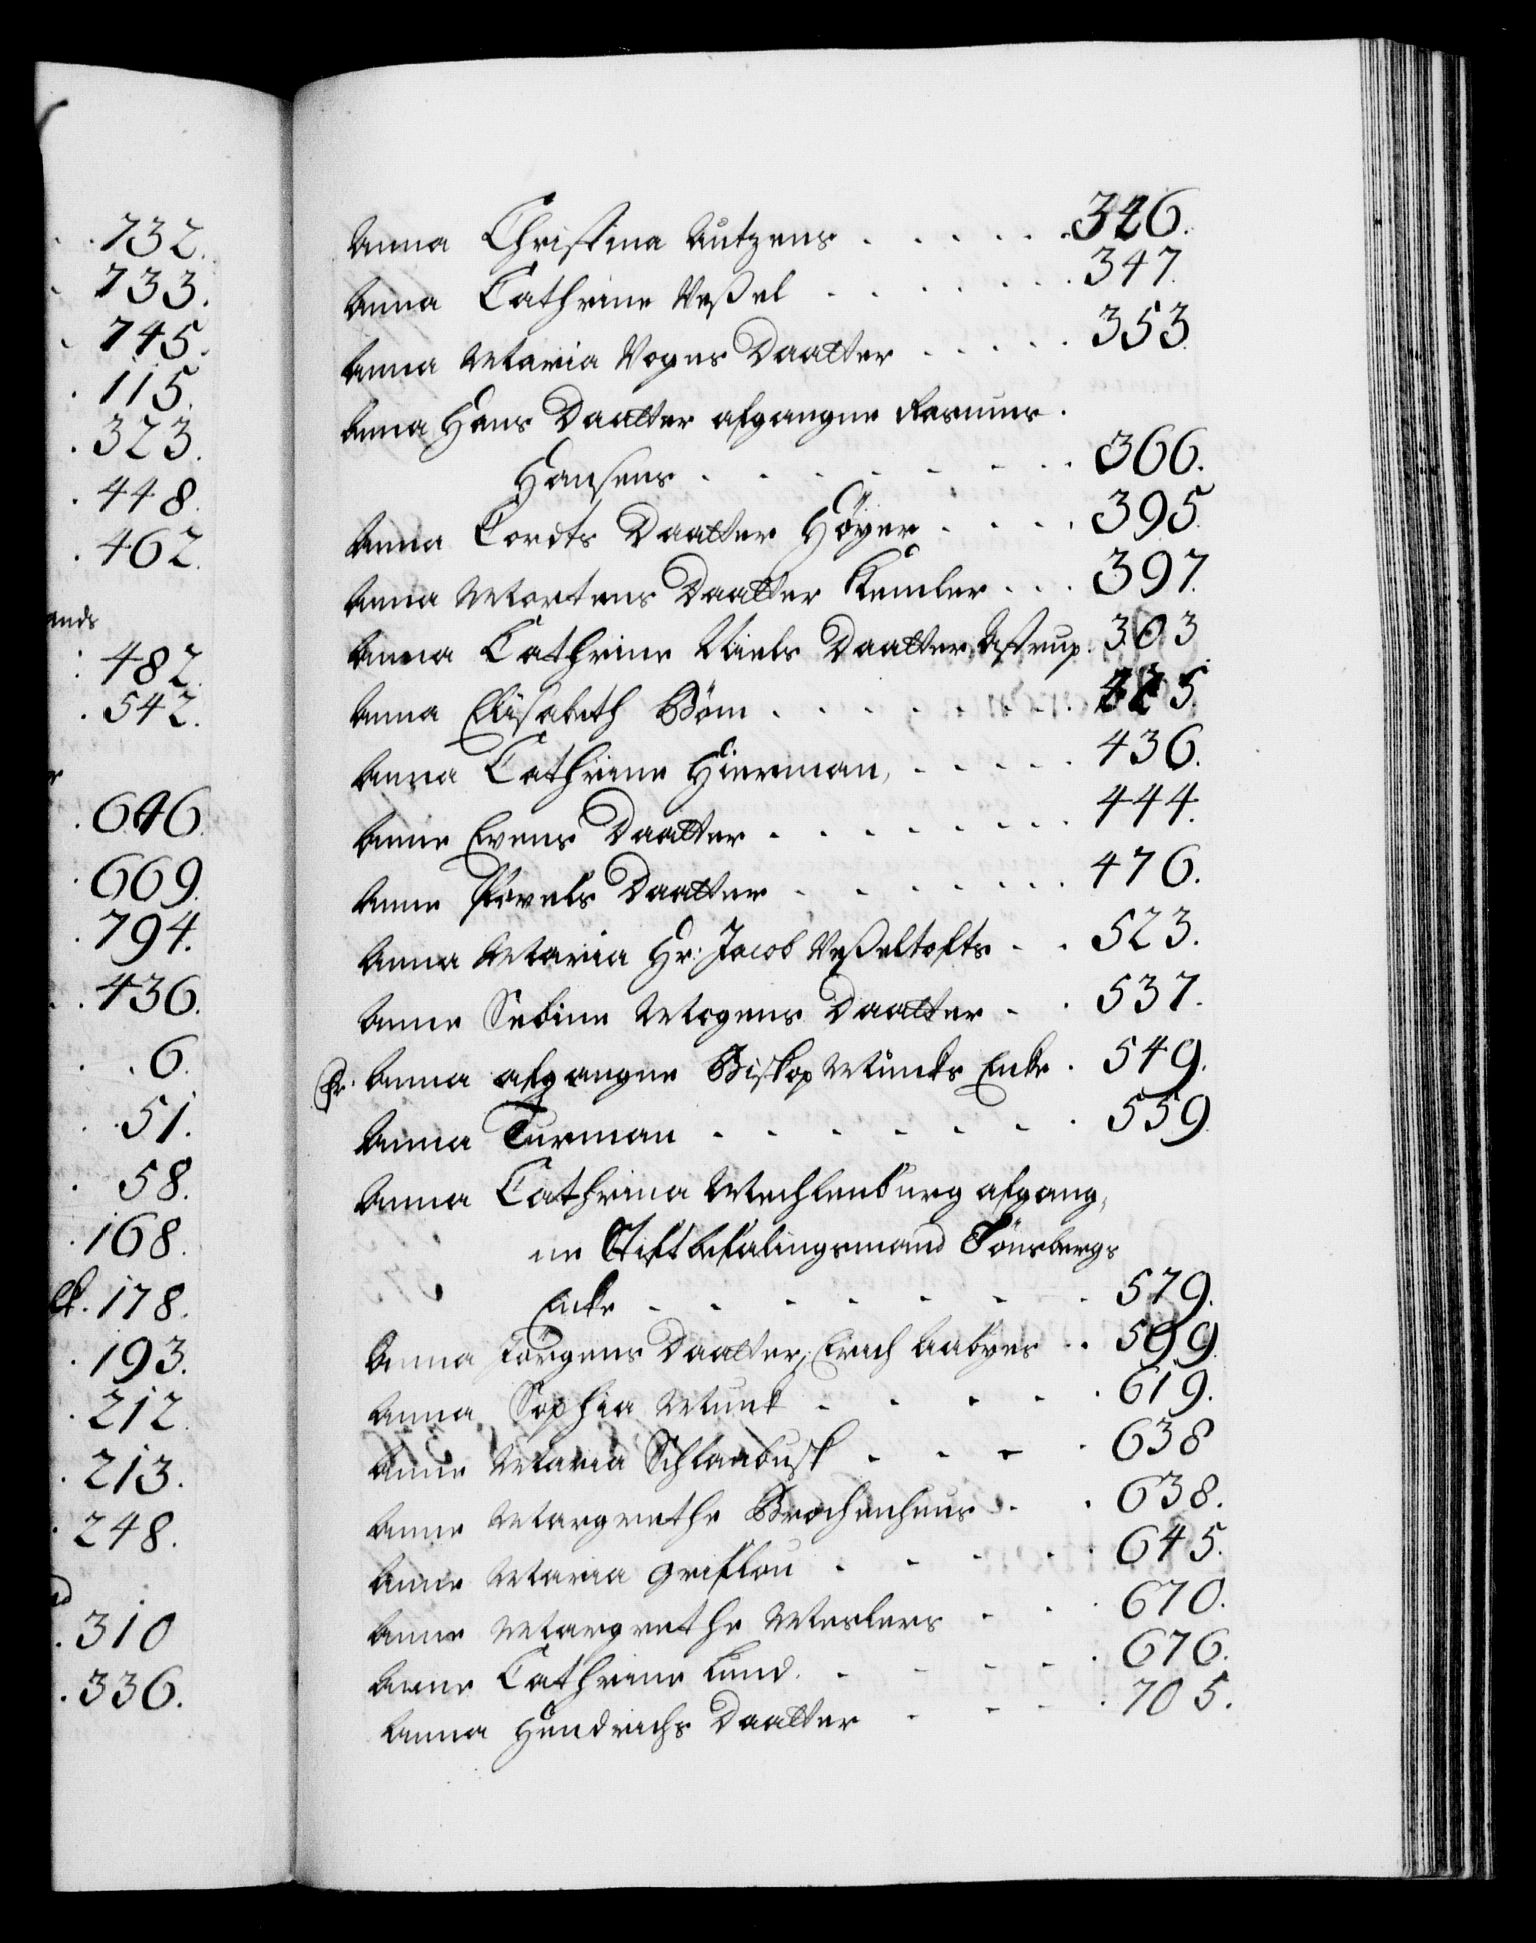 732.
733.
745.
115.
323.
448.
462.
ands
482.
542.
r
646.
669.
794.
436.
6.
51.
58.
168.
178.
193.
212.
213.
248.
310
336.
Anna Christina Autzens . . . . . 346.
Anna Cathrine Veßel . . . . . . 347.
Anna Maria Vogns Daatter . . . . 353
Anna Hans Daatter afgangne Rasmus .
Hansens . . . . . . . 366.
Anna Cordts Daatter Höyer . . . . 395.
Anna Mortens Daatter Kemler . . . 397.
Anna Cathrine Niels Daatter Astrup . 303
Anna Elisabeth Böm . . . . . . 425.
Anna Cathrine Hierman, . . . . . 436.
Anne Evens Daatter . . . . . . . 444.
Anne Povels Daatter . . . . . . 476.
Anna Maria Hr: Jacob Veßeltofts . . 523.
Anne Sebine Mogens Daatter . . 537.
Fr. Anna afgangne Biskop Munks Enke . 549.
Anna Turman . . . . . . . 559.
Anna Cathrina Mechlenburg afgang,
ne Stiftbefalingsmand Tönsbergs
Enke . . . . . . . 579.
Anna Jörgens Daatter, Erich Aabyes . . 599.
Anna Sophia Munk . . . . . 619.
Anne Maria Schlaabusk . . . . 638
Anne Margrethe Brochenhuus . . 638.
Anne Maria Griffou . . . . . 645.
Anne Margrethe Meslers . . . 670.
Anne Cathrine Lund . . . . . 676.
Anna Hendrichs Daatter . . . . 705.